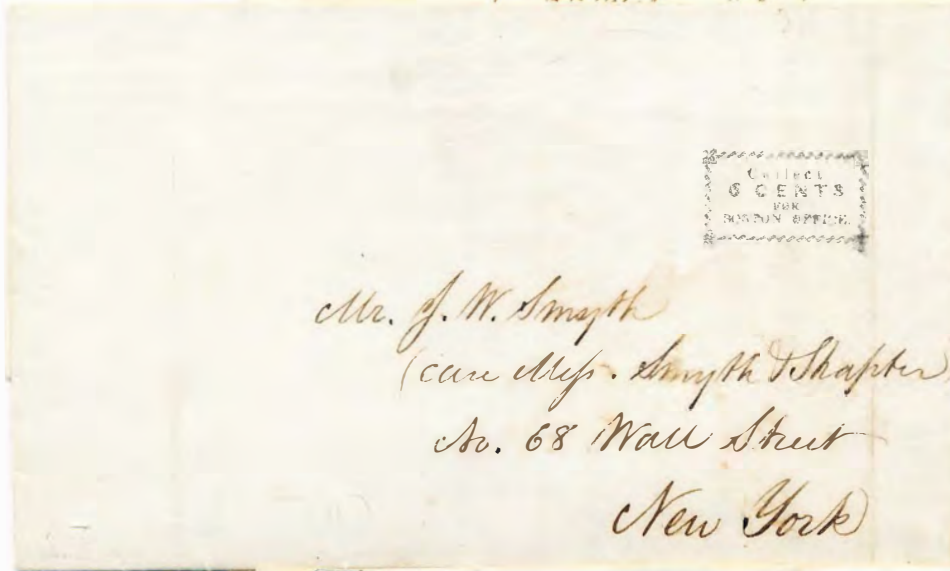 Collect
6 CENTS
FOR
BOSTON OFFICE.
Mr. J. W. Smyth
(care Mess. Smyth & Shapter
No. 68 Wall Street
New York